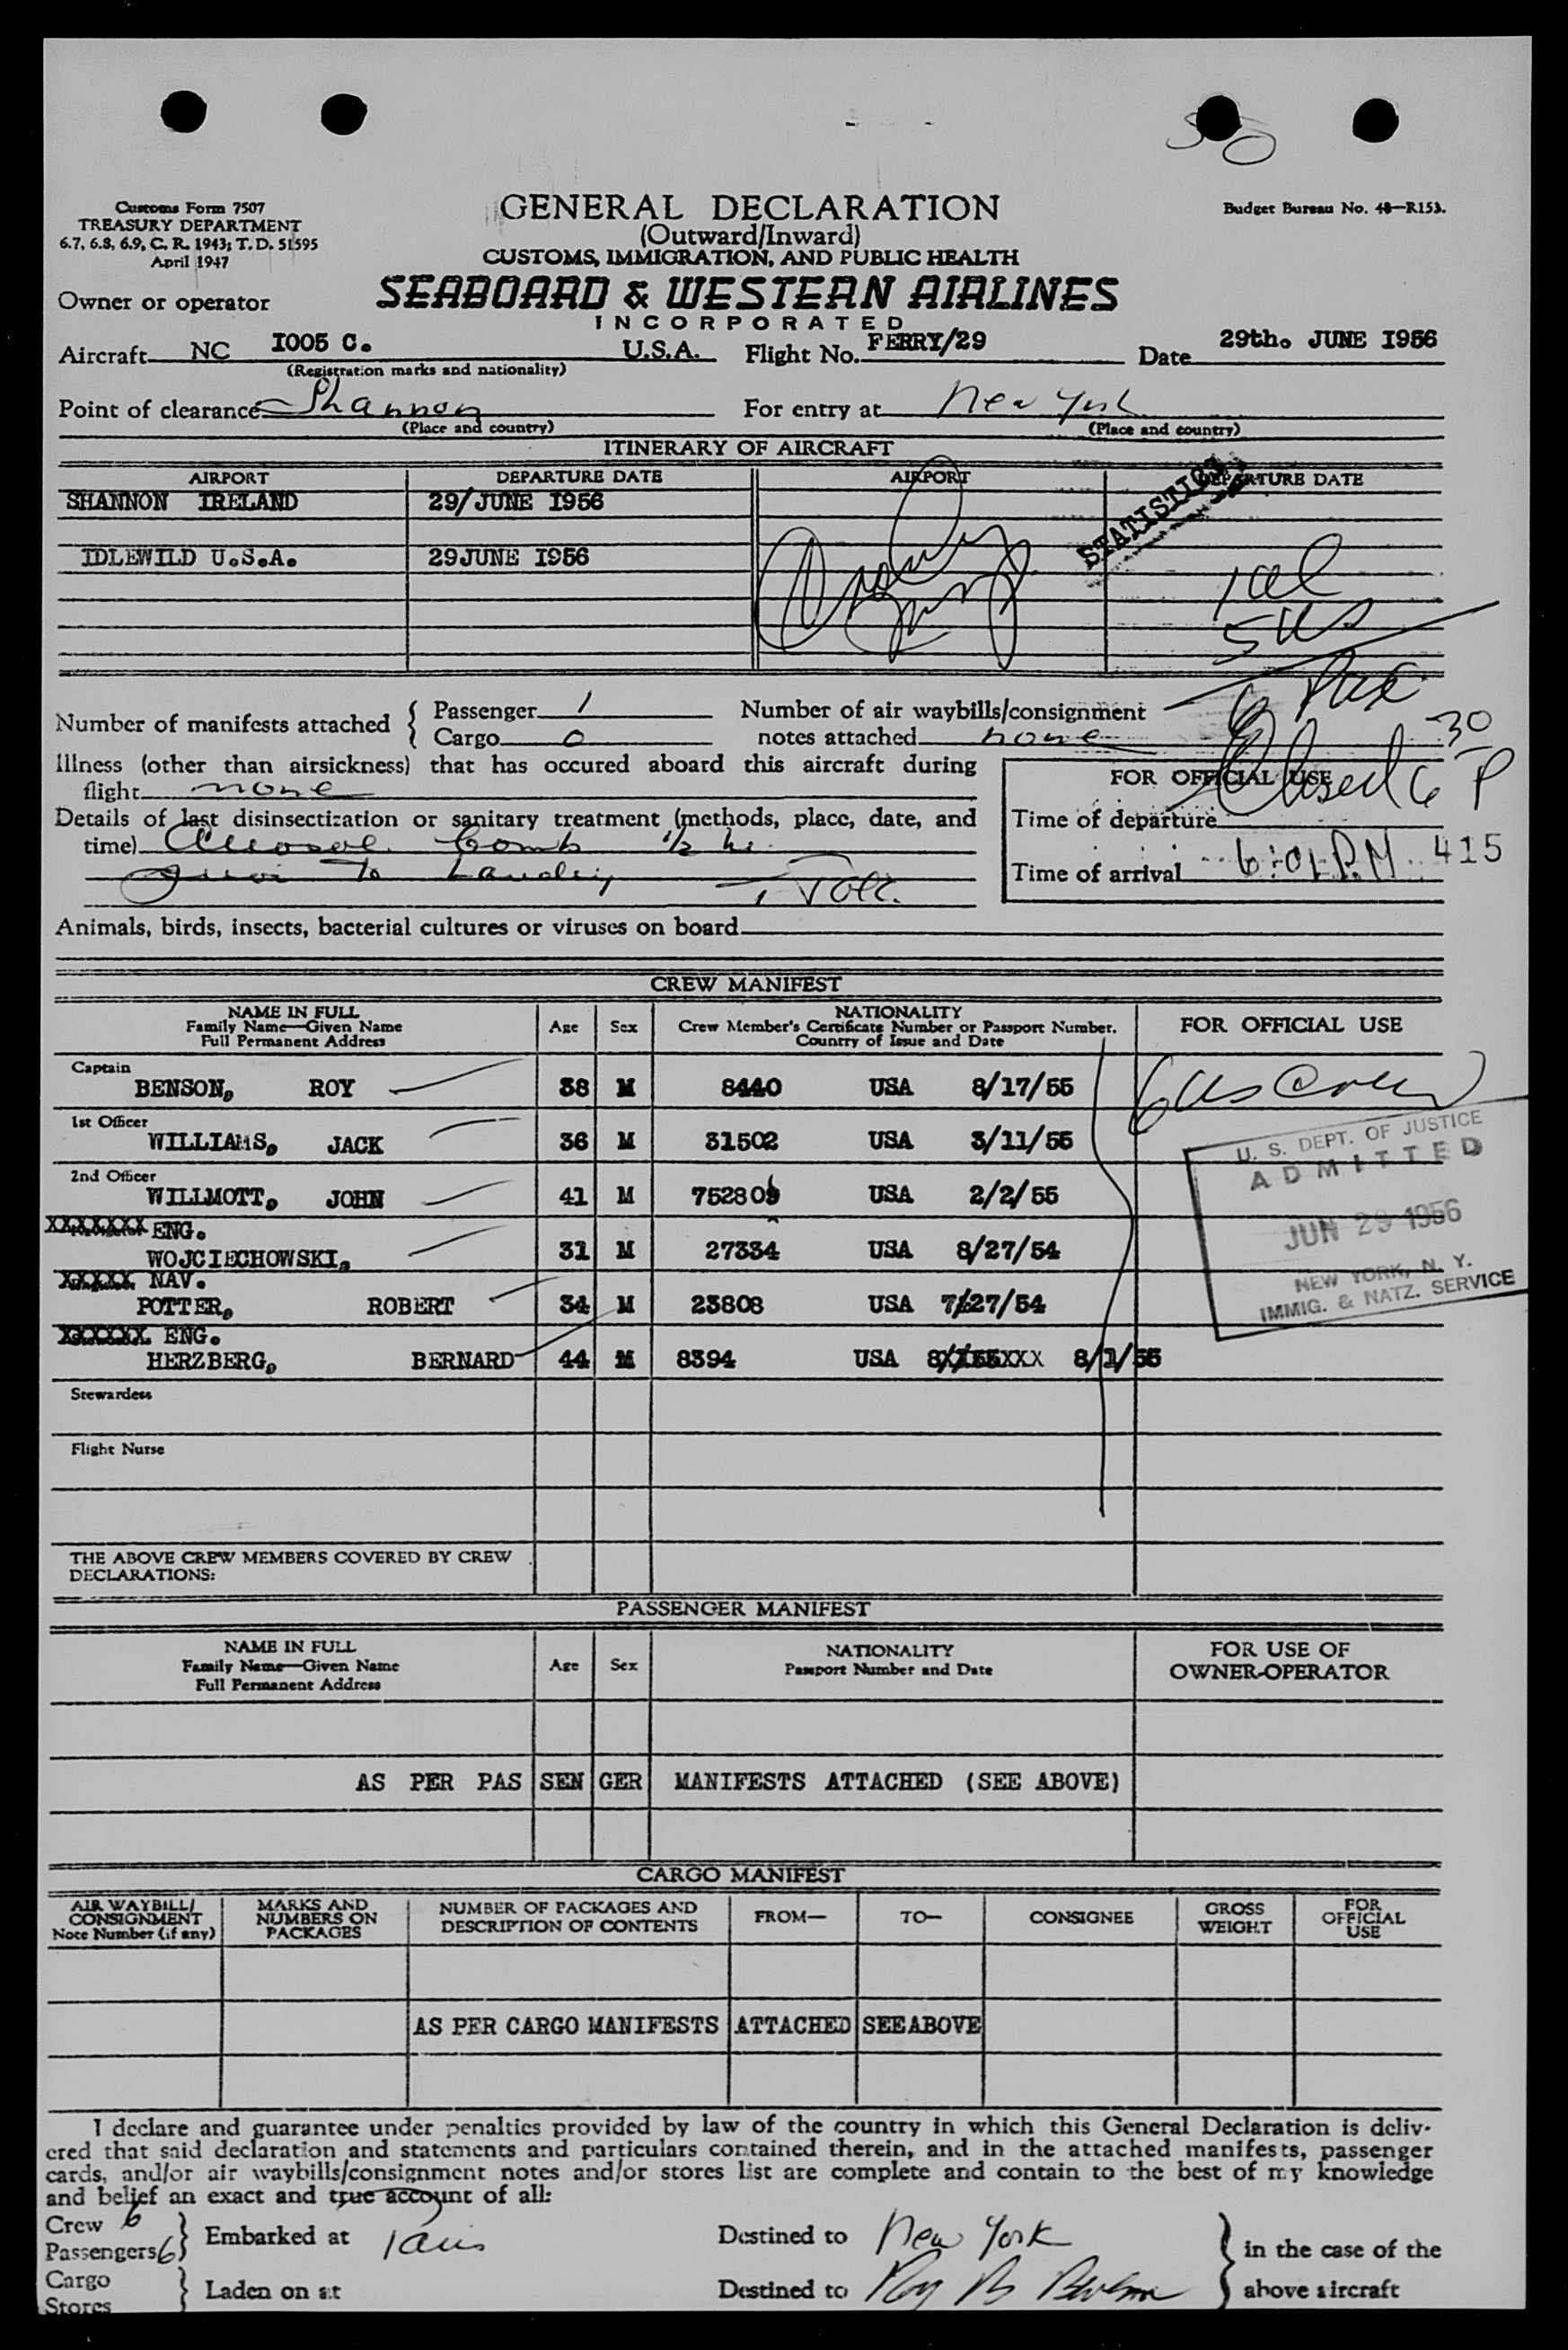 50
Customs Form 7507
TREASURY DEPARTMENT
6.7, 6.8, 6.9, C. R. 1943; T. D. 51595
April 1947
GENERAL DECLARATION
(Outward/Inward)
CUSTOMS, IMMIGRATION, AND PUBLIC HEALTH
Budget Bureau No. 48—R153.
Owner or operator SEABOARD & WESTERN AIRLINES
INCORPORATED
Aircraft NC I005 C. U.S.A. Flight No. FERRY/29 Date 29th. JUNE I956
(Registration marks and nationality)
Point of clearance Shannon For entry at New York
(Place and country) (Place and country)
ITINERARY OF AIRCRAFT
AIRPORT DEPARTURE DATE AIRPORT DEPARTURE DATE
STATISTICS
SHANNON IRELAND 29/JUNE I956
IDLEWILD U.S.A. 29JUNE I956
1 al
5 US
6 Pax
Number of manifests attached { Passenger 1 Number of air waybills/consignment
Cargo 0 notes attached none
Closed 6 30 P
Illness (other than airsickness) that has occured aboard this aircraft during
flight none
FOR OFFICIAL USE
Details of last disinsectization or sanitary treatment (methods, place, date, and
time) Aerosol Bomb 1/2 hr.
Prior To Landing
Time of departure
Time of arrival 6:01 P.M. 415
Animals, birds, insects, bacterial cultures or viruses on board
CREW MANIFEST
NAME IN FULL
Family Name—Given Name
Full Permanent Address
Age Sex
NATIONALITY
Crew Member's Certificate Number or Passport Number.
Country of Issue and Date
FOR OFFICIAL USE
Captain
BENSON, ROY 38 M 8440 USA 8/17/55
6 US Crew
1st Officer
WILLIAMS, JACK 36 M 31502 USA 3/11/55
2nd Officer
WILLMOTT, JOHN 41 M 75280 USA 2/2/55
U. S. DEPT. OF JUSTICE
ADMITTED
JUN 29 1956
NEW YORK, N. Y.
IMMIG. & NATZ. SERVICE
XXXXXXX ENG.
WOJCIECHOWSKI, 31 M 27334 USA 8/27/54
XXXXX NAV.
POTTER, ROBERT 34 M 23808 USA 7/27/54
XXXXXX ENG.
HERZBERG, BERNARD 44 M 8394 USA 8/1/55
Stewardess
Flight Nurse
THE ABOVE CREW MEMBERS COVERED BY CREW
DECLARATIONS:
PASSENGER MANIFEST
NAME IN FULL
Family Name—Given Name
Full Permanent Address
Age Sex
NATIONALITY
Passport Number and Date
FOR USE OF
OWNER-OPERATOR
AS PER PAS SEN GER MANIFESTS ATTACHED (SEE ABOVE)
CARGO MANIFEST
AIR WAYBILL/
CONSIGNMENT
Note Number (if any)
MARKS AND
NUMBERS ON
PACKAGES
NUMBER OF PACKAGES AND
DESCRIPTION OF CONTENTS
FROM—
TO—
CONSIGNEE
GROSS
WEIGHT
FOR
OFFICIAL
USE
AS PER CARGO MANIFESTS ATTACHED SEE ABOVE
I declare and guarantee under penalties provided by law of the country in which this General Declaration is deliv-
ered that said declaration and statements and particulars contained therein, and in the attached manifests, passenger
cards, and/or air waybills/consignment notes and/or stores list are complete and contain to the best of my knowledge
and belief an exact and true account of all:
Crew 6
Passengers 6 } Embarked at Paris Destined to New York } in the case of the
Cargo
Stores } Laden on at Destined to Roy B Benson above aircraft